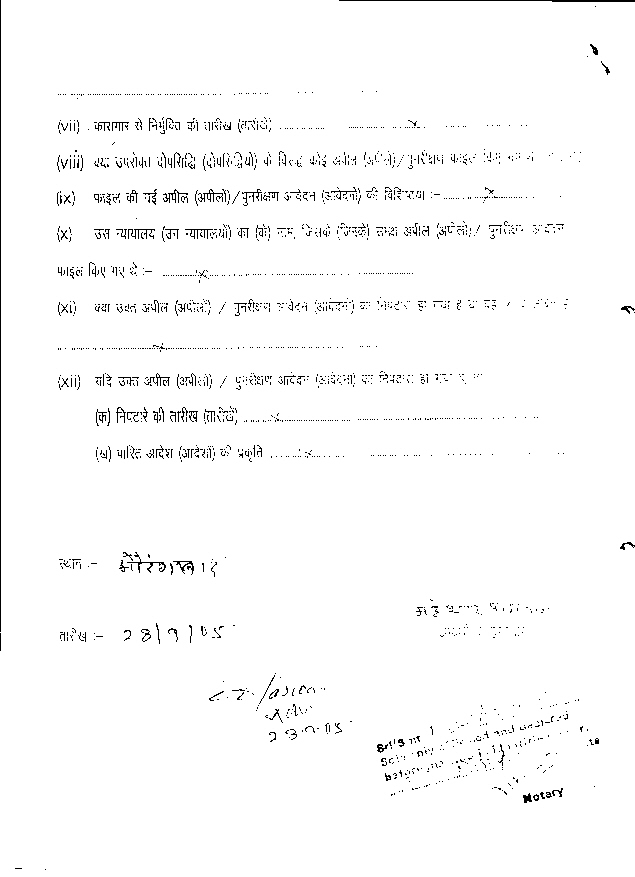 (vii) कारागार से निर्मुक्ति की तारीख (तारीखें) .......... x ..........
(viii) क्या उपरोक्त दोषसिद्धि (दोषसिद्धियों) के विरुद्ध कोई अपील (अपीलें)/पुनरीक्षण फाइल किए
(ix) फाइल की गई अपील (अपीलों)/पुनरीक्षण आवेदन (आवेदनों) की विशिष्टियां :- .......... x ..........
(x) उस न्यायालय (उन न्यायालयों) का (के) नाम, जिसके (जिनके) समक्ष अपील (अपीलों) / पुनरीक्षण आवेदन
फाइल किए गए थे :- .......... x ..........
(xi) क्या उक्त अपील (अपीलों) / पुनरीक्षण आवेदन (आवेदनों) का निपटारा हो गया है या वह /
.......... x ..........
(xii) यदि उक्त अपील (अपीलों) / पुनरीक्षण आवेदन (आवेदनों) का निपटारा हो गया
(क) निपटारे की तारीख (तारीखें) .......... x ..........
(ख) पारित आदेश (आदेशों) की प्रकृति .......... x ..........
स्थान :- औरंगाबाद
तारीख :- 28/9/05
Adv
28.9.05
Sri/Smt
and
before me
Notary